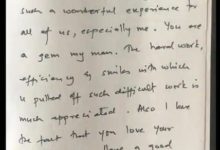 such a wonderful experience for
all of us, especially me. You are
a gem my man. The hard work,
efficiency & smiles with which
u pulled off such difficult work is
much appreciated. Also I love
the fact that you love your
have a good